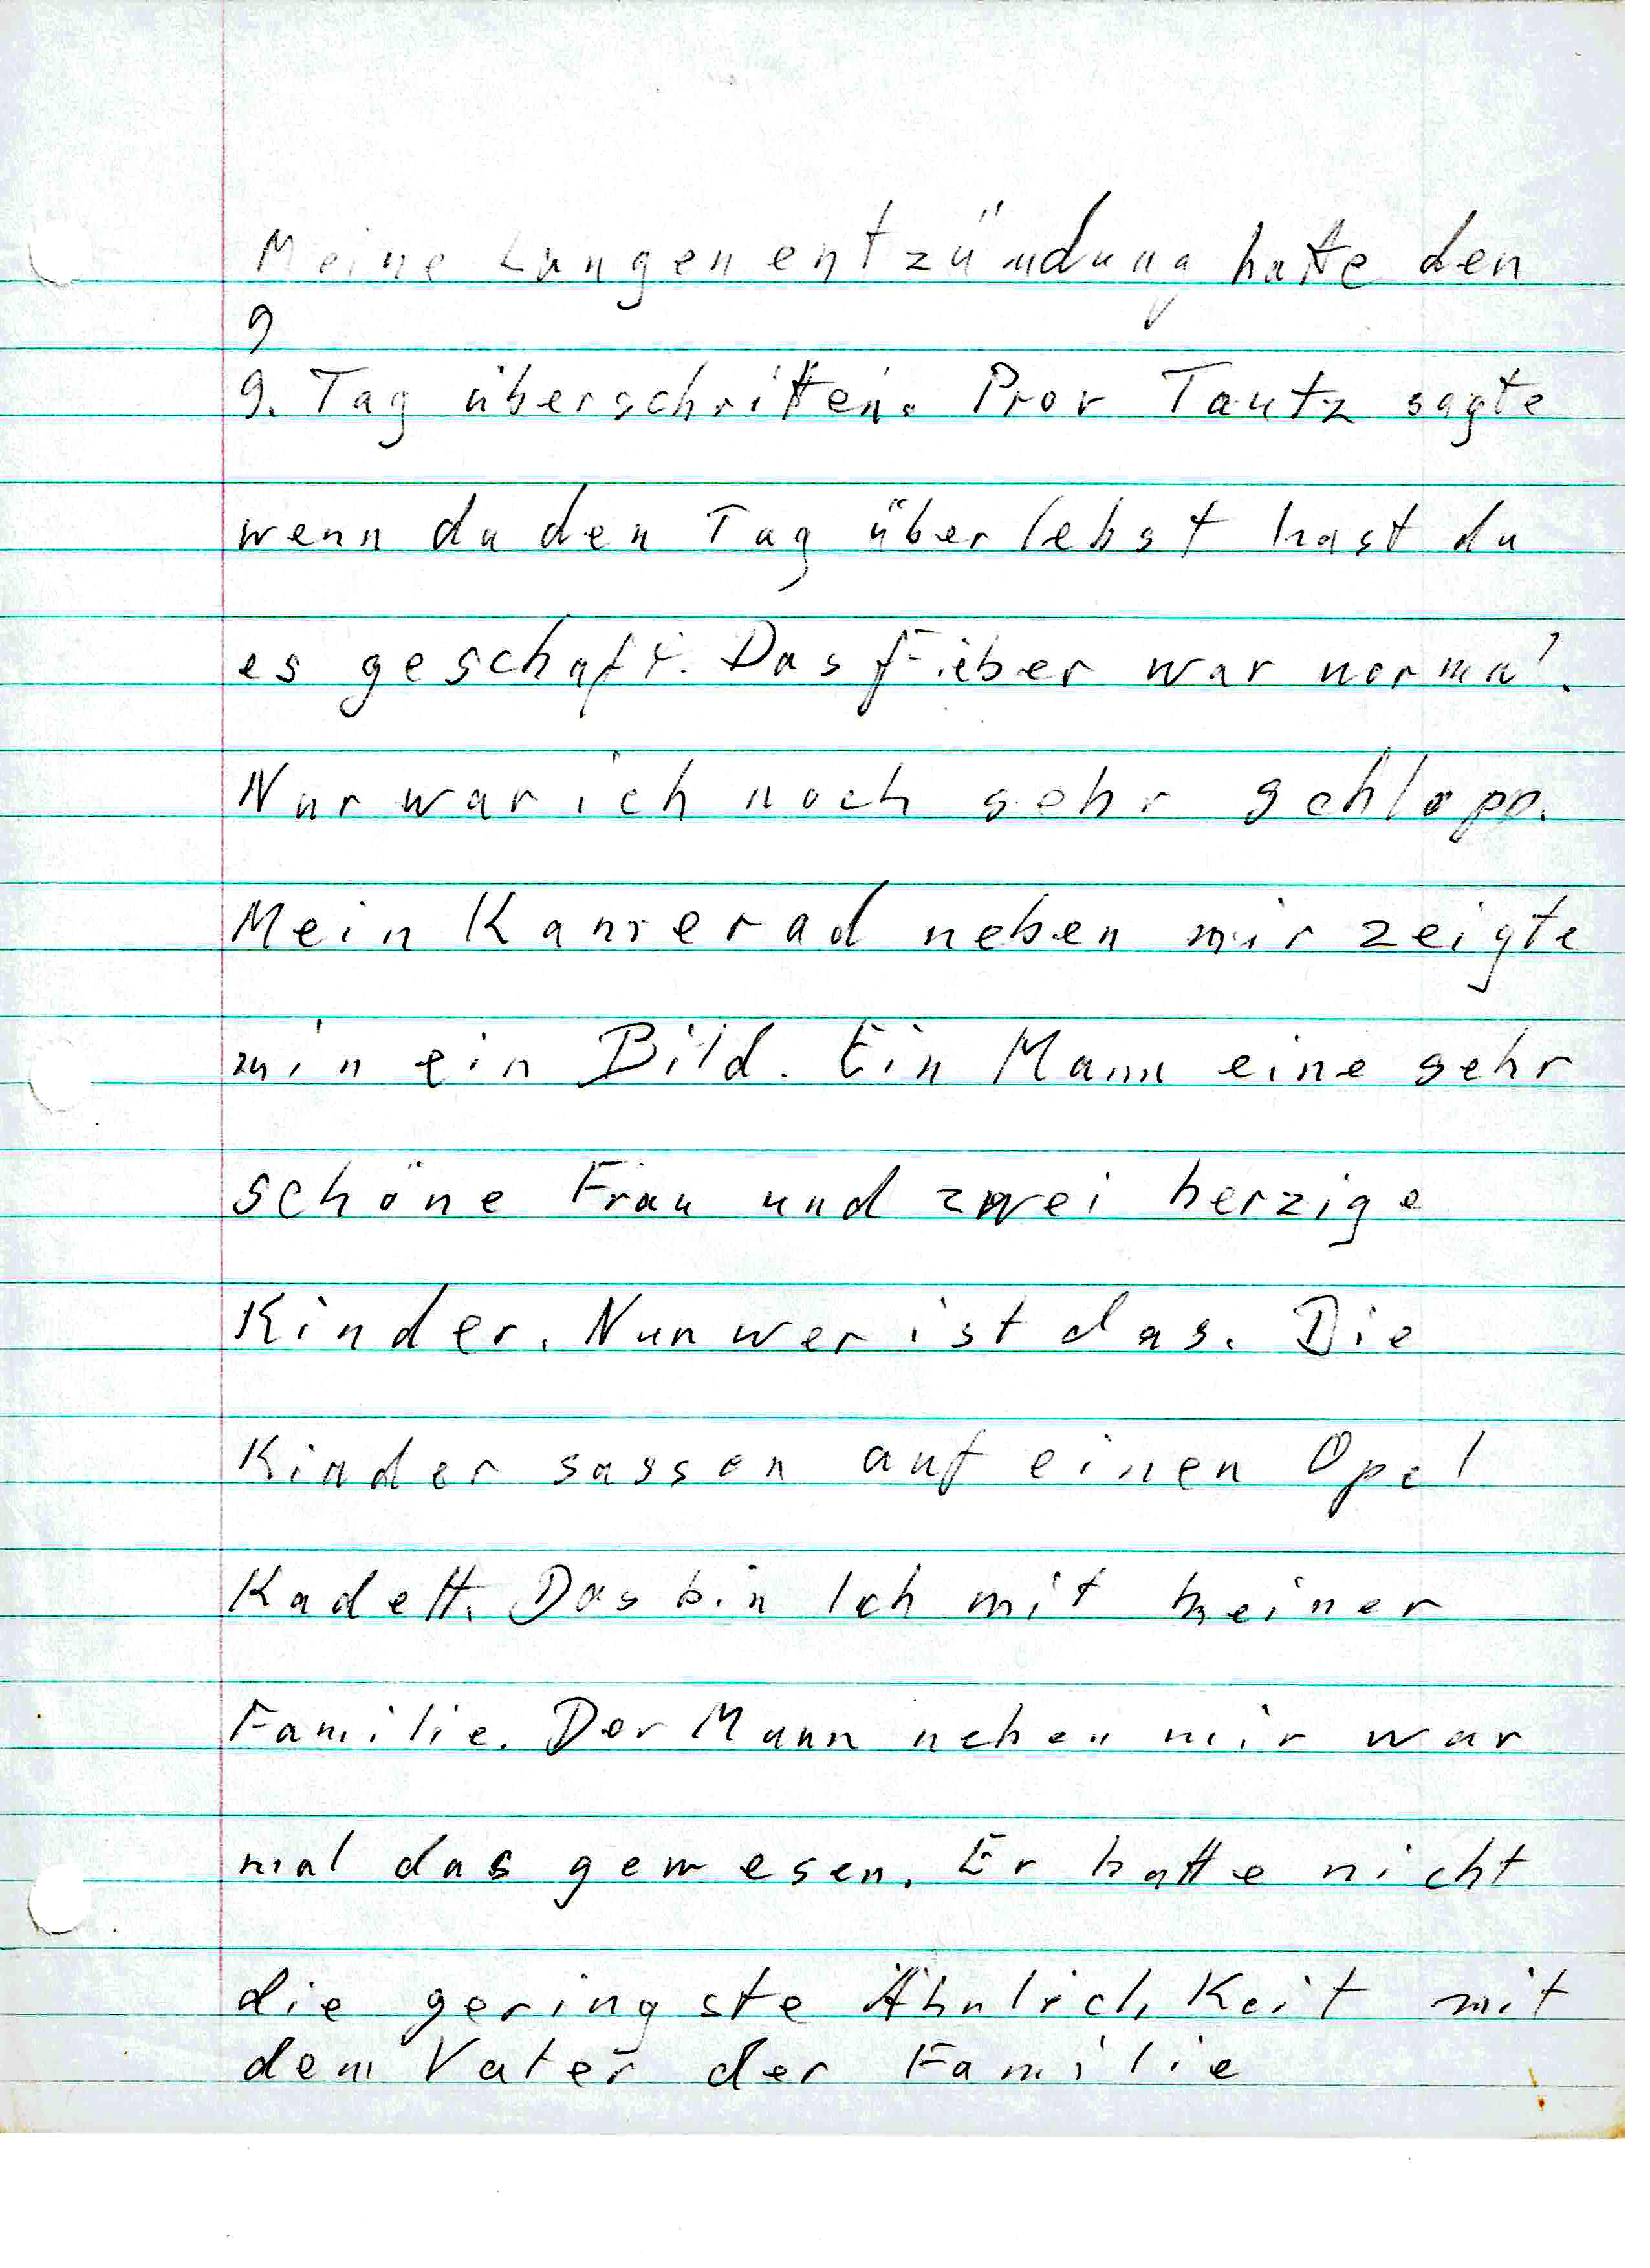 Meine Lungenentzündung hatte den
9
9. Tag überschritten. Prov Tautz sagte
wenn du den Tag überlebst hast du
es geschaft. Das Fieber war normal.
Nur war ich noch sehr schlapp.
Mein Kamerad neben mir zeigte
min ein Bild. Ein Mann eine sehr
schöne Frau und zwei herzige
Kinder. Nun wer ist das. Die
Kinder sassen auf einen Opel
Kadett. Das bin Ich mit meiner
Familie. Der Mann neben mir war
mal das gewesen. Er hatte nicht
die geringste Ähnlichkeit mit
dem Vater der Familie